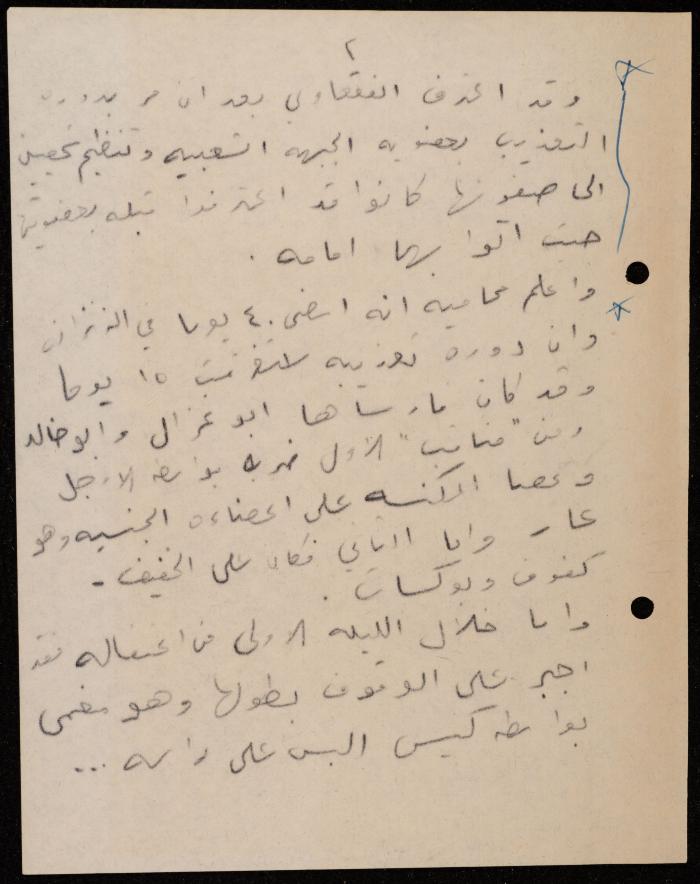 ٢
وقد اعترف الفقعاوي بعد ان مر بدوره
التعذيب بعضويه الجبهه الشعبيه وتنظيم شخصين
الى صفوفها كانوا قد اعترفوا قبله بعضويتها
حيث اتوا بهما امامه .
واعلم محاميه انه امضى ٤٠ يوما في الزنزانه
وان دوره تعذيبه استغرقت ١٥ يوما
وقد كان مارساها ابو غزال وابو خالد
ومن "مناقب" الاول ضربه بواسطه الارجل
وعصا المكنسه على اعضاءه الجنسيه وهو
عار واما الثاني فكان على الخفيف -
كفوف وبوكسات .
واما خلال الليله الاولى من اعتقاله فقد
اجبر على الوقوف بطولها وهو مغمى
بواسطه كيس البس على راسه ...